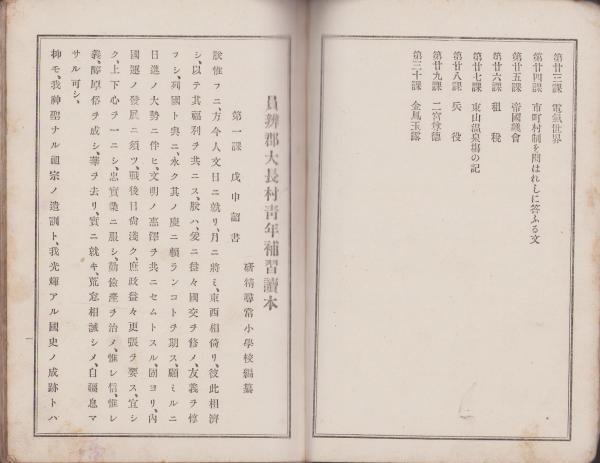 第廿三課　電氣世界
第廿四課　市町村制を問はれしに答ふる文
第廿五課　帝國議會
第廿六課　租税
第廿七課　東山温泉場の記
第廿八課　兵役
第廿九課　二宮尊德
第三十課　金風玉露
員辨郡大長村靑年補習讀本
硏精尋常小學校編纂
第一課　戊申詔書
朕惟フニ、方今人文日ニ就リ、月ニ將ミ、東西相倚リ、彼此相濟
シ、以テ其福利ヲ共ニス、朕ハ、爰ニ益々國交ヲ修メ、友義ヲ惇
フシ、列國ト與ニ、永ク其ノ慶ニ賴ランコトヲ期ス、顧ミルニ
日進ノ大勢ニ伴ヒ、文明ノ惠澤ヲ共ニセムトスル、固ヨリ、内
國運ノ發展ニ須ツ、戰後日尚淺ク、庶政益々更張ヲ要ス、宜シ
ク、上下心ヲ一ニシ、忠實業ニ服シ、勤儉產ヲ治メ、惟レ信、惟レ
義、醇厚俗ヲ成シ、華ヲ去リ、實ニ就キ、荒怠相誡シメ、自彊息マ
サル可シ、
抑モ、我神聖ナル祖宗ノ遺訓ト、我光輝アル國史ノ成跡トハ
一